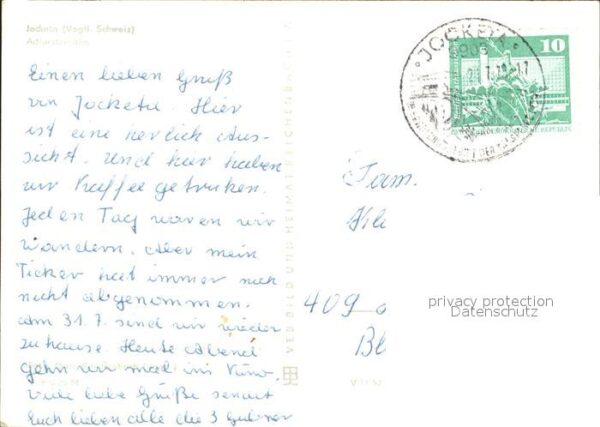 Jocketa (Vogtl. Schweiz)
Einen lieben Gruß
von Jocketa. Hier
ist eine herlich Aus-
sicht. Und hier haben
wir Kaffee getrunken.
Jeden Tag waren wir
wandern. Aber mein
Dicker hat immer noch
nicht abgenommen.
Am 31.7. sind wir wieder
zu hause. Heute Abend
gehn wir mal ins Kino.
Viele liebe Grüße sendet
Euch lieben alle die 3
VEB BILD UND HEIMAT REICHENBACH
JOCKETA
10
Fam.
Kle
409
Bl
privacy protection
Datenschutz